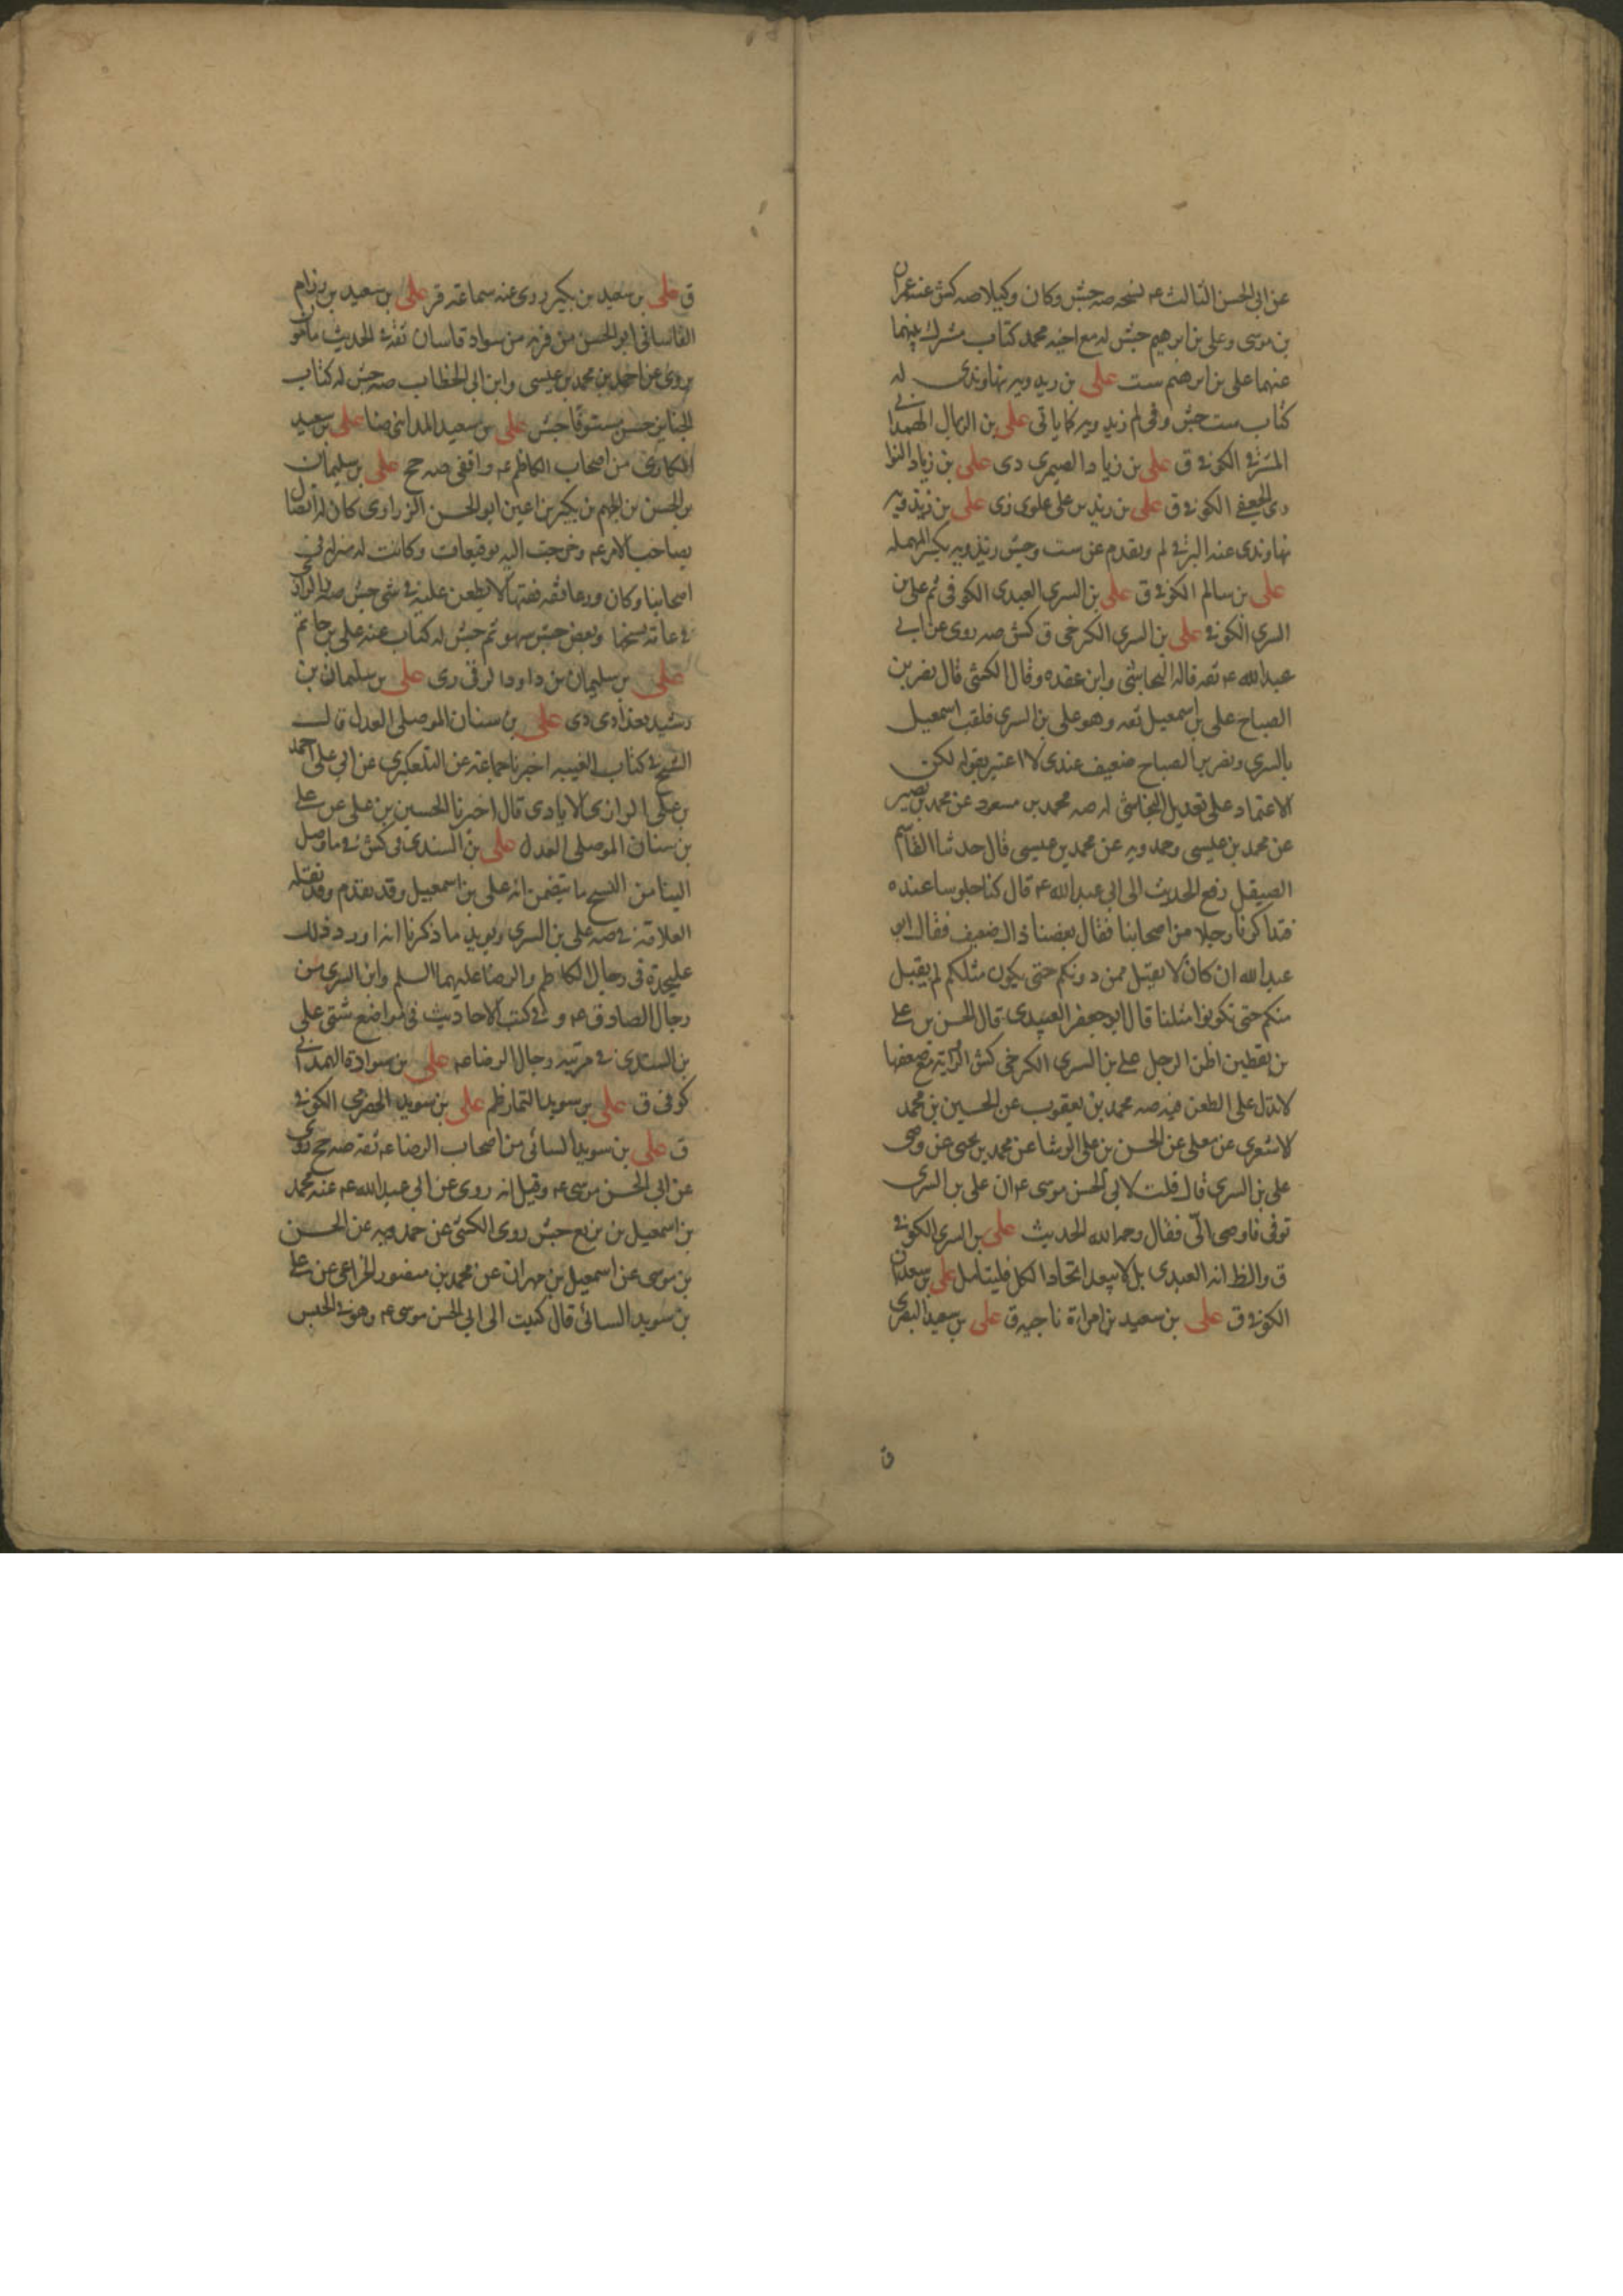 عن ابی الحسن الثالث ع‍ نسخه صه جش وکان وکیلا صه کش عنه عمران
بن موسی وعلی بن ابرهیم جش له مع اخیه محمد کتاب مشترک بینهما
عنهما علی بن ابرهیم ست علی بن ریدویه نهاوندی له
کتاب ست جش وفی لم زیدویه کما یاتی علی بن الزیال الهمدانی
المشرقی الکوفی ق علی بن زیاد الصیمری دی علی بن زیاد النوا
دی الجعفی الکوفی ق علی بن زید بن علی علوی ری علی بن زیدویه
نهاوندی عنه البرقی لم وتقدم عن ست وجش ریذویه بکسر المهمله
علی بن سالم الکوفی ق علی بن السری العبدی الکوفی ثم علی بن
السری الکوفی علی بن السری الکرخی ق کش صه روی عن ابی
عبدالله ع‍ ثقه قاله النجاشی وابن عقده وقال الکشی قال نصر بن
الصباح علی بن اسمعیل ثقه وهو علی بن السری فلقب اسمعیل
بالسری ونصر بن الصباح ضعیف عندی لا اعتبر بقوله لکن
الاعتماد علی تعدیل النجاشی له صه محمد بن مسعود عن محمد بن نصیر
عن محمد بن عیسی وحمدویه عن محمد بن عیسی قال حدثنا القاسم
الصیقل رفع الحدیث الی ابی عبدالله ع‍ قال کنا جلوسا عنده
فتذاکرنا رجلا من اصحابنا فقال بعضنا ذاک ضعیف فقال ابو
عبدالله ان کان لا یقبل ممن دونکم حتی یکون مثلکم لم یقبل
منکم حتی تکونوا مثلنا قال ابو جعفر العبیدی قال الحسن بن علی
بن یقطین اظن الرجل علی بن السری الکرخی کش الروایة مع ضعفها
لا تدل علی الطعن فیه صه محمد بن یعقوب عن الحسین بن محمد
الاشعری عن معلی عن الحسن بن علی الوشا عن محمد بن یحیی عن وصی
علی بن السری قال قلت لابی الحسن موسی ع‍ ان علی بن السری
توفی فاوصی الیّ فقال رحمه الله الحدیث علی بن السری الکوفی
ق والظ انه العبدی بل لا یبعد اتحاد الکل فلیتامل علی بن سعدان
الکوفی ق علی بن سعید بن امراة ناجیه ق علی بن سعید البصری
ق
ق علی بن سعید بن بکیر روی عنه سماعته قر علی بن سعید بن رزام
القاسانی ابو الحسن من قریه من سواد قاسان ثقة فی الحدیث مامون
روی عن احمد بن محمد بن عیسی وابن ابی الخطاب صه جش له کتاب
الجنایز حسن مستوفا جش علی بن سعید المداینی ضا علی بن سعید
المکاری من اصحاب الکاظم ع‍ واقفی صه جح علی بن سلیمان
بن الحسن بن الجهم بن بکیر بن اعین ابو الحسن الزراری کان له اتصال
بصاحب الامر ع‍ وخرجت الیه توقیعات وکانت له منزله فی
اصحابنا وکان ورعا ثقه فقیها لا یطعن علیه فی شی جش صه
فی عامة نسخها وبعض جش سهو ثم جش له کتاب عنه علی بن حاتم
علی بن سلیمان بن داود الرقی ری علی بن سلیمان بن
رشید بغدادی دی علی بن سنان الموصلی العدل قال
الشیخ فی کتاب الغیبه اخبرنا جماعة عن التلعکبری عن ابی علی احمد
بن علی الرازی الایادی قال اخبرنا الحسین بن علی عن علی
بن سنان الموصلی العدل علی بن السندی فی کش فی ما وصل
الینا من النسخ ما یتضمن انه علی بن اسمعیل وقد تقدم وقد نقله
العلامة فی صه علی بن السری ویوید ما ذکرنا انه اورد ذلک
علیحدة فی رجال الکاظم والرضا علیهما السلم وابن السری من
رجال الصادق ع‍ وفی کتب الاحادیث فی مواضع شتی علی
بن السندی فی مرتبه رجال الرضا ع‍ علی بن سوادة الهمدانی
کوفی ق علی بن سوید التمار ظم علی بن سوید الحضرمی الکوفی
ق علی بن سوید السائی من اصحاب الرضا ع‍ ثقه صه جح روی
عن ابی الحسن موسی ع‍ وقیل انه روی عن ابی عبدالله ع‍ عنه محمد
بن اسمعیل بن بزیع جش روی الکشی عن حمدویه عن الحسن
بن موسی عن اسمعیل بن مهران عن محمد بن منصور الخزاعی عن علی
بن سوید السائی قال کتبت الی ابی الحسن موسی ع‍ وهو فی الحبس